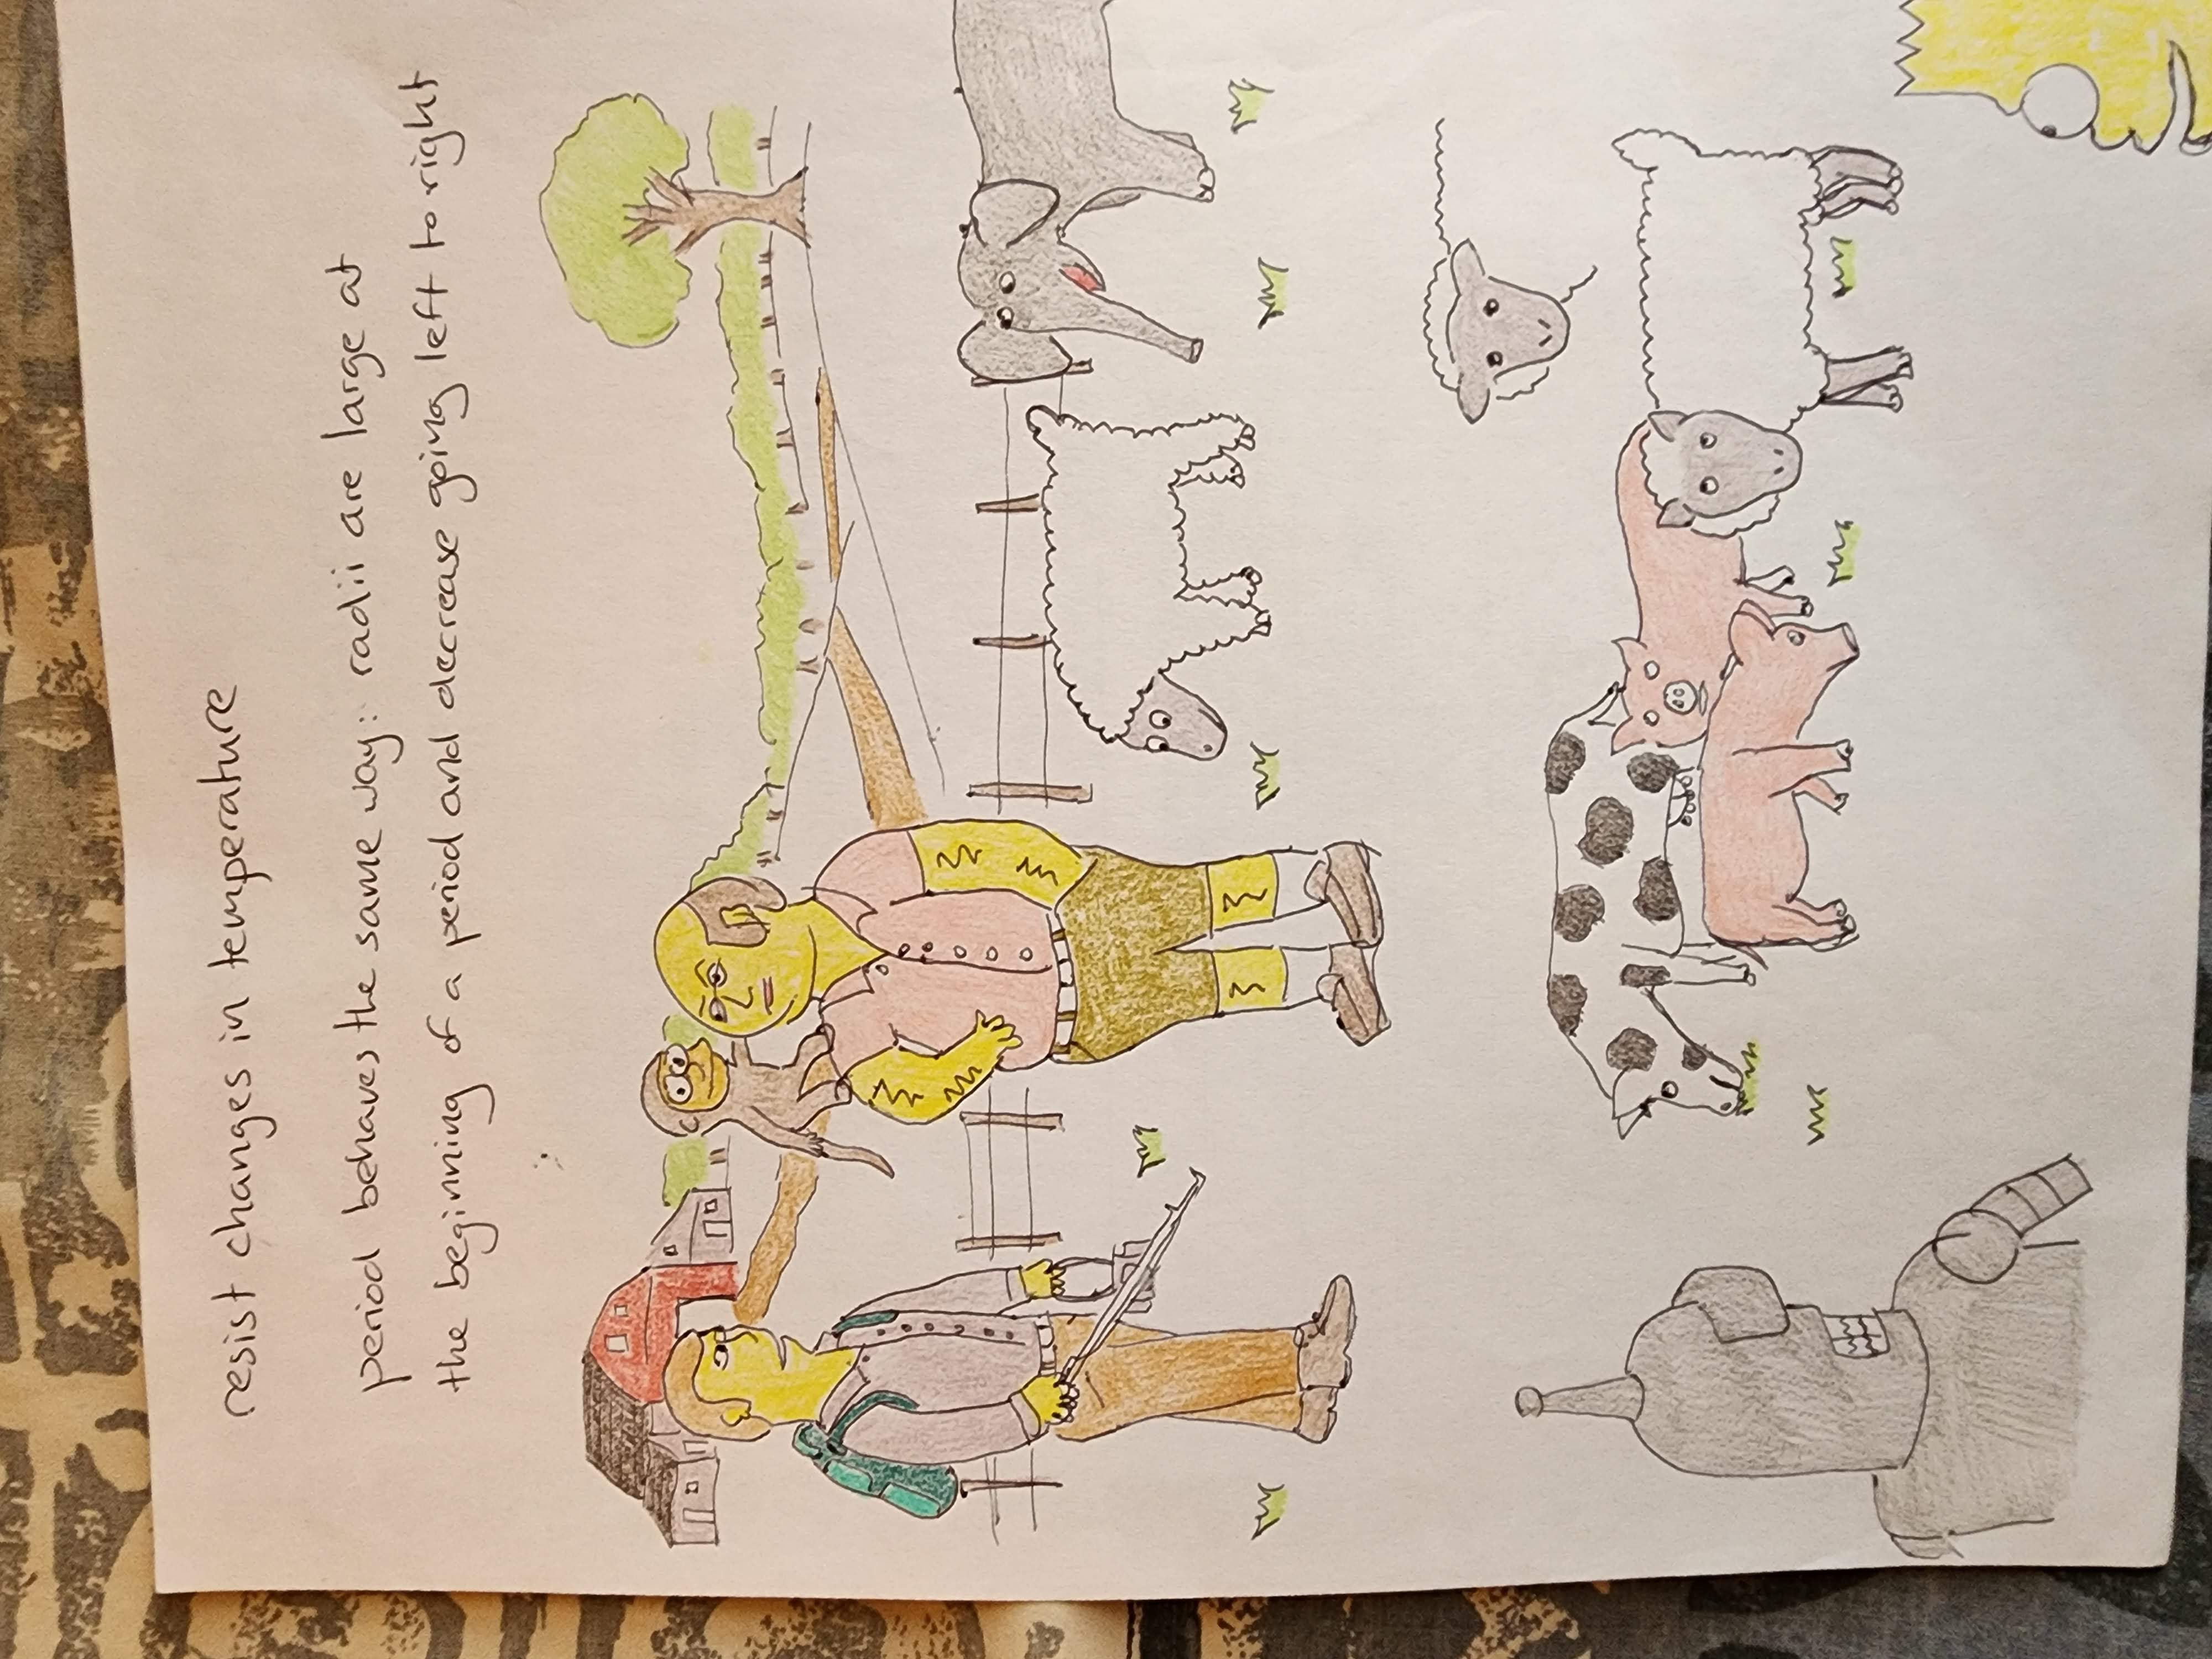 resist changes in temperature
period behaves the same way: radii are large at
the beginning of a period and decrease going left to right